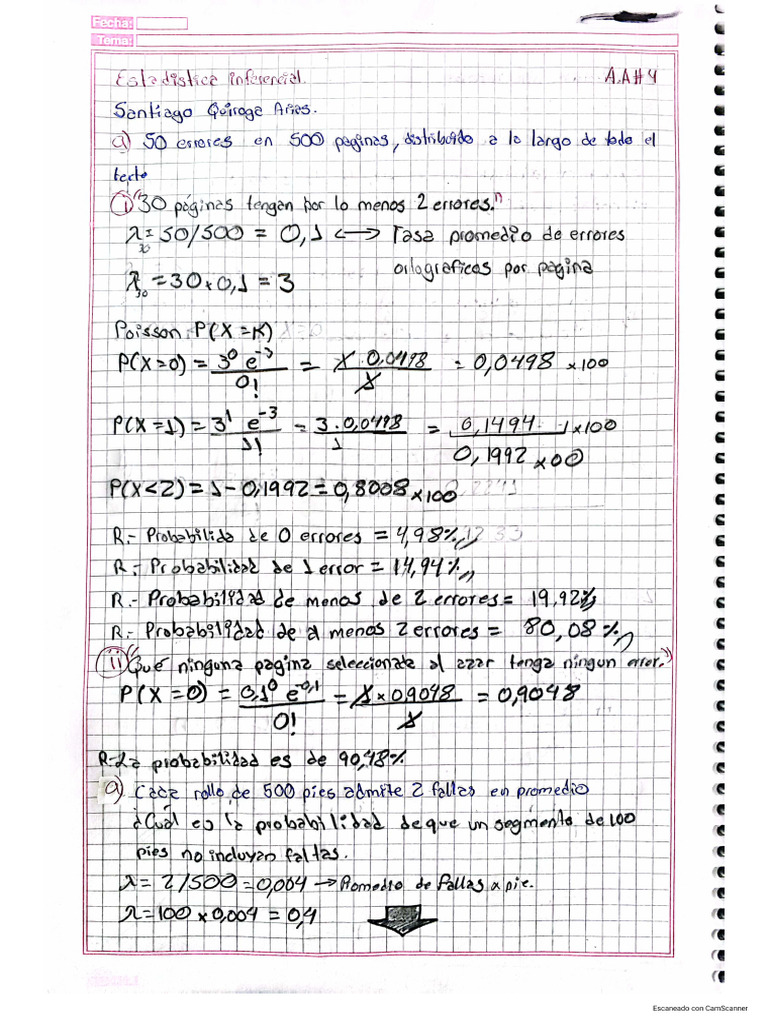 Fecha:
Tema:
Estadistica inferencial. A.A#4
Santiago Quiroga Arias.
a) 50 errores en 500 paginas, distribuido a lo largo de todo el
texto
i "30 páginas tengan por lo menos 2 errores."
λ = 50/500 = 0,1 ⟷ Tasa promedio de errores
ortograficos por pagina
λ30 = 30 x 0,1 = 3
Poisson: P(X=K)
P(X=0) = 3^0 e^-3 / 0! = 1 . 0.0498 / 1 = 0,0498 x100
P(X=1) = 3^1 e^-3 / 1! = 3 . 0,0498 / 1 = 0,1494 x100
0,1992 x00
P(X<2) = 1 - 0,1992 = 0,8008 x100
R.- Probabilida de 0 errores = 4,98%
R.- Probabilidad de 1 error = 14,94%
R.- Probabilidad de menos de 2 errores = 19,92%
R.- Probabilidad de al menos 2 errores = 80,08%
ii "Que ninguna pagina seleccionada al azar tenga ningun error."
P(X=0) = 0,1^0 e^-0,1 / 0! = 1 x 0,9048 / 1 = 0,9048
R-La probabilidad es de 90,48%
a) Cada rollo de 500 pies admite 2 fallas en promedio
¿Cuál es la probabilidad de que un segmento de 100
pies no incluyan faltas.
λ = 2/500 = 0,004 → Promedio de fallas x pie.
λ = 100 x 0,004 = 0,4
Escaneado con CamScanner